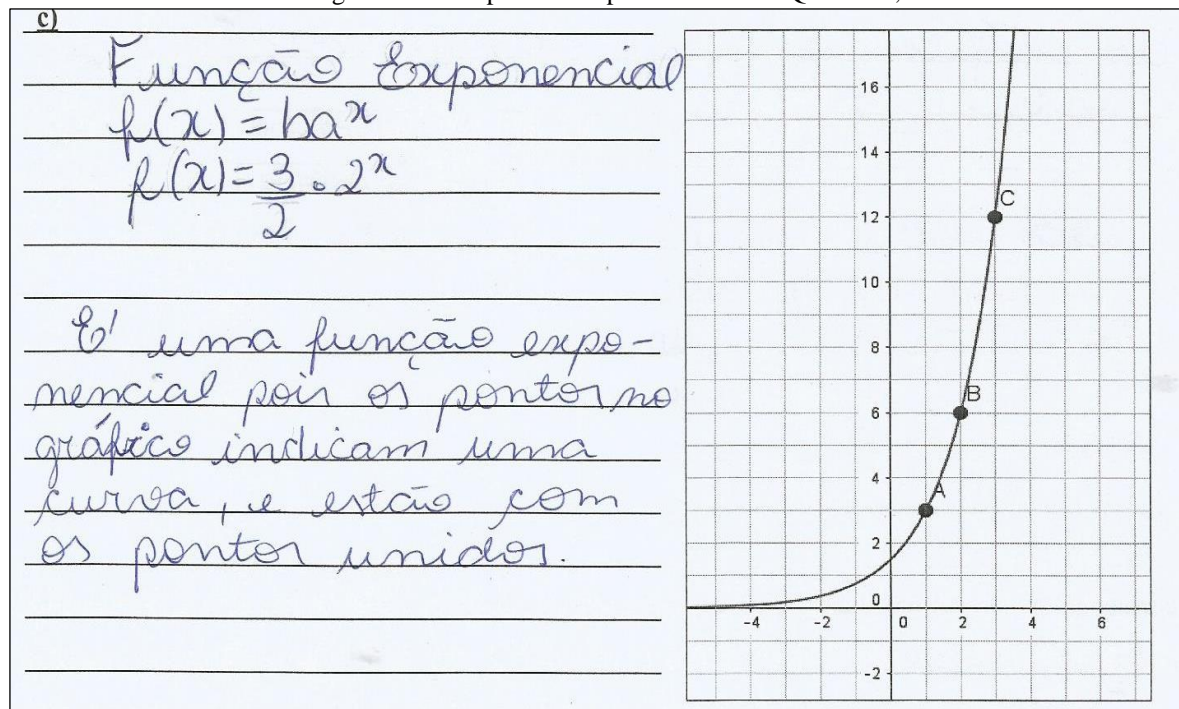 c)
Função Exponencial
f(x) = ba^x
f(x) = 3/2 . 2^x
É uma função expo-
nencial pois os pontos no
gráfico indicam uma
curva, e estão com
os pontos unidos.
16
14
C
12
10
8
B
6
4
A
2
0
-4 -2 0 2 4 6
-2